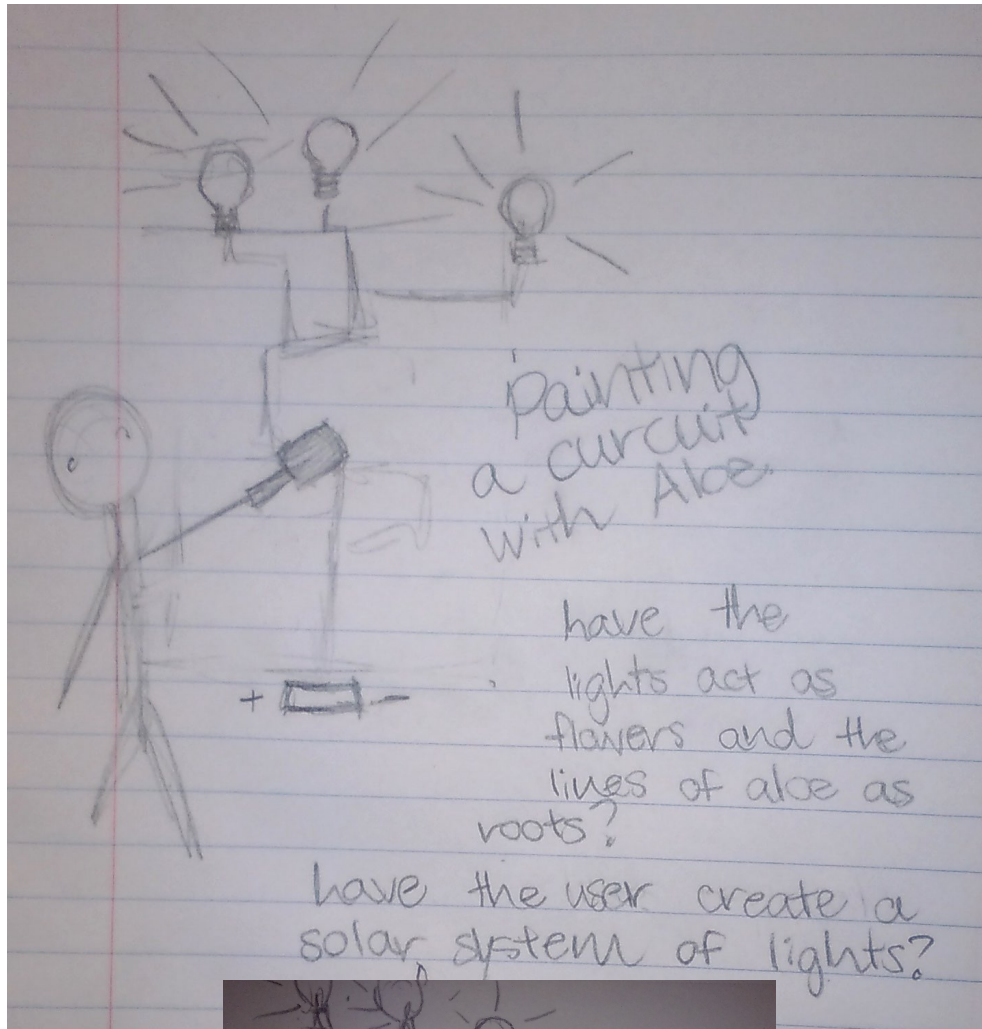 painting
a curcuit
with Aloe.
+ -
have the
lights act as
flowers and the
lines of aloe as
roots?
have the user create a
solar system of lights?